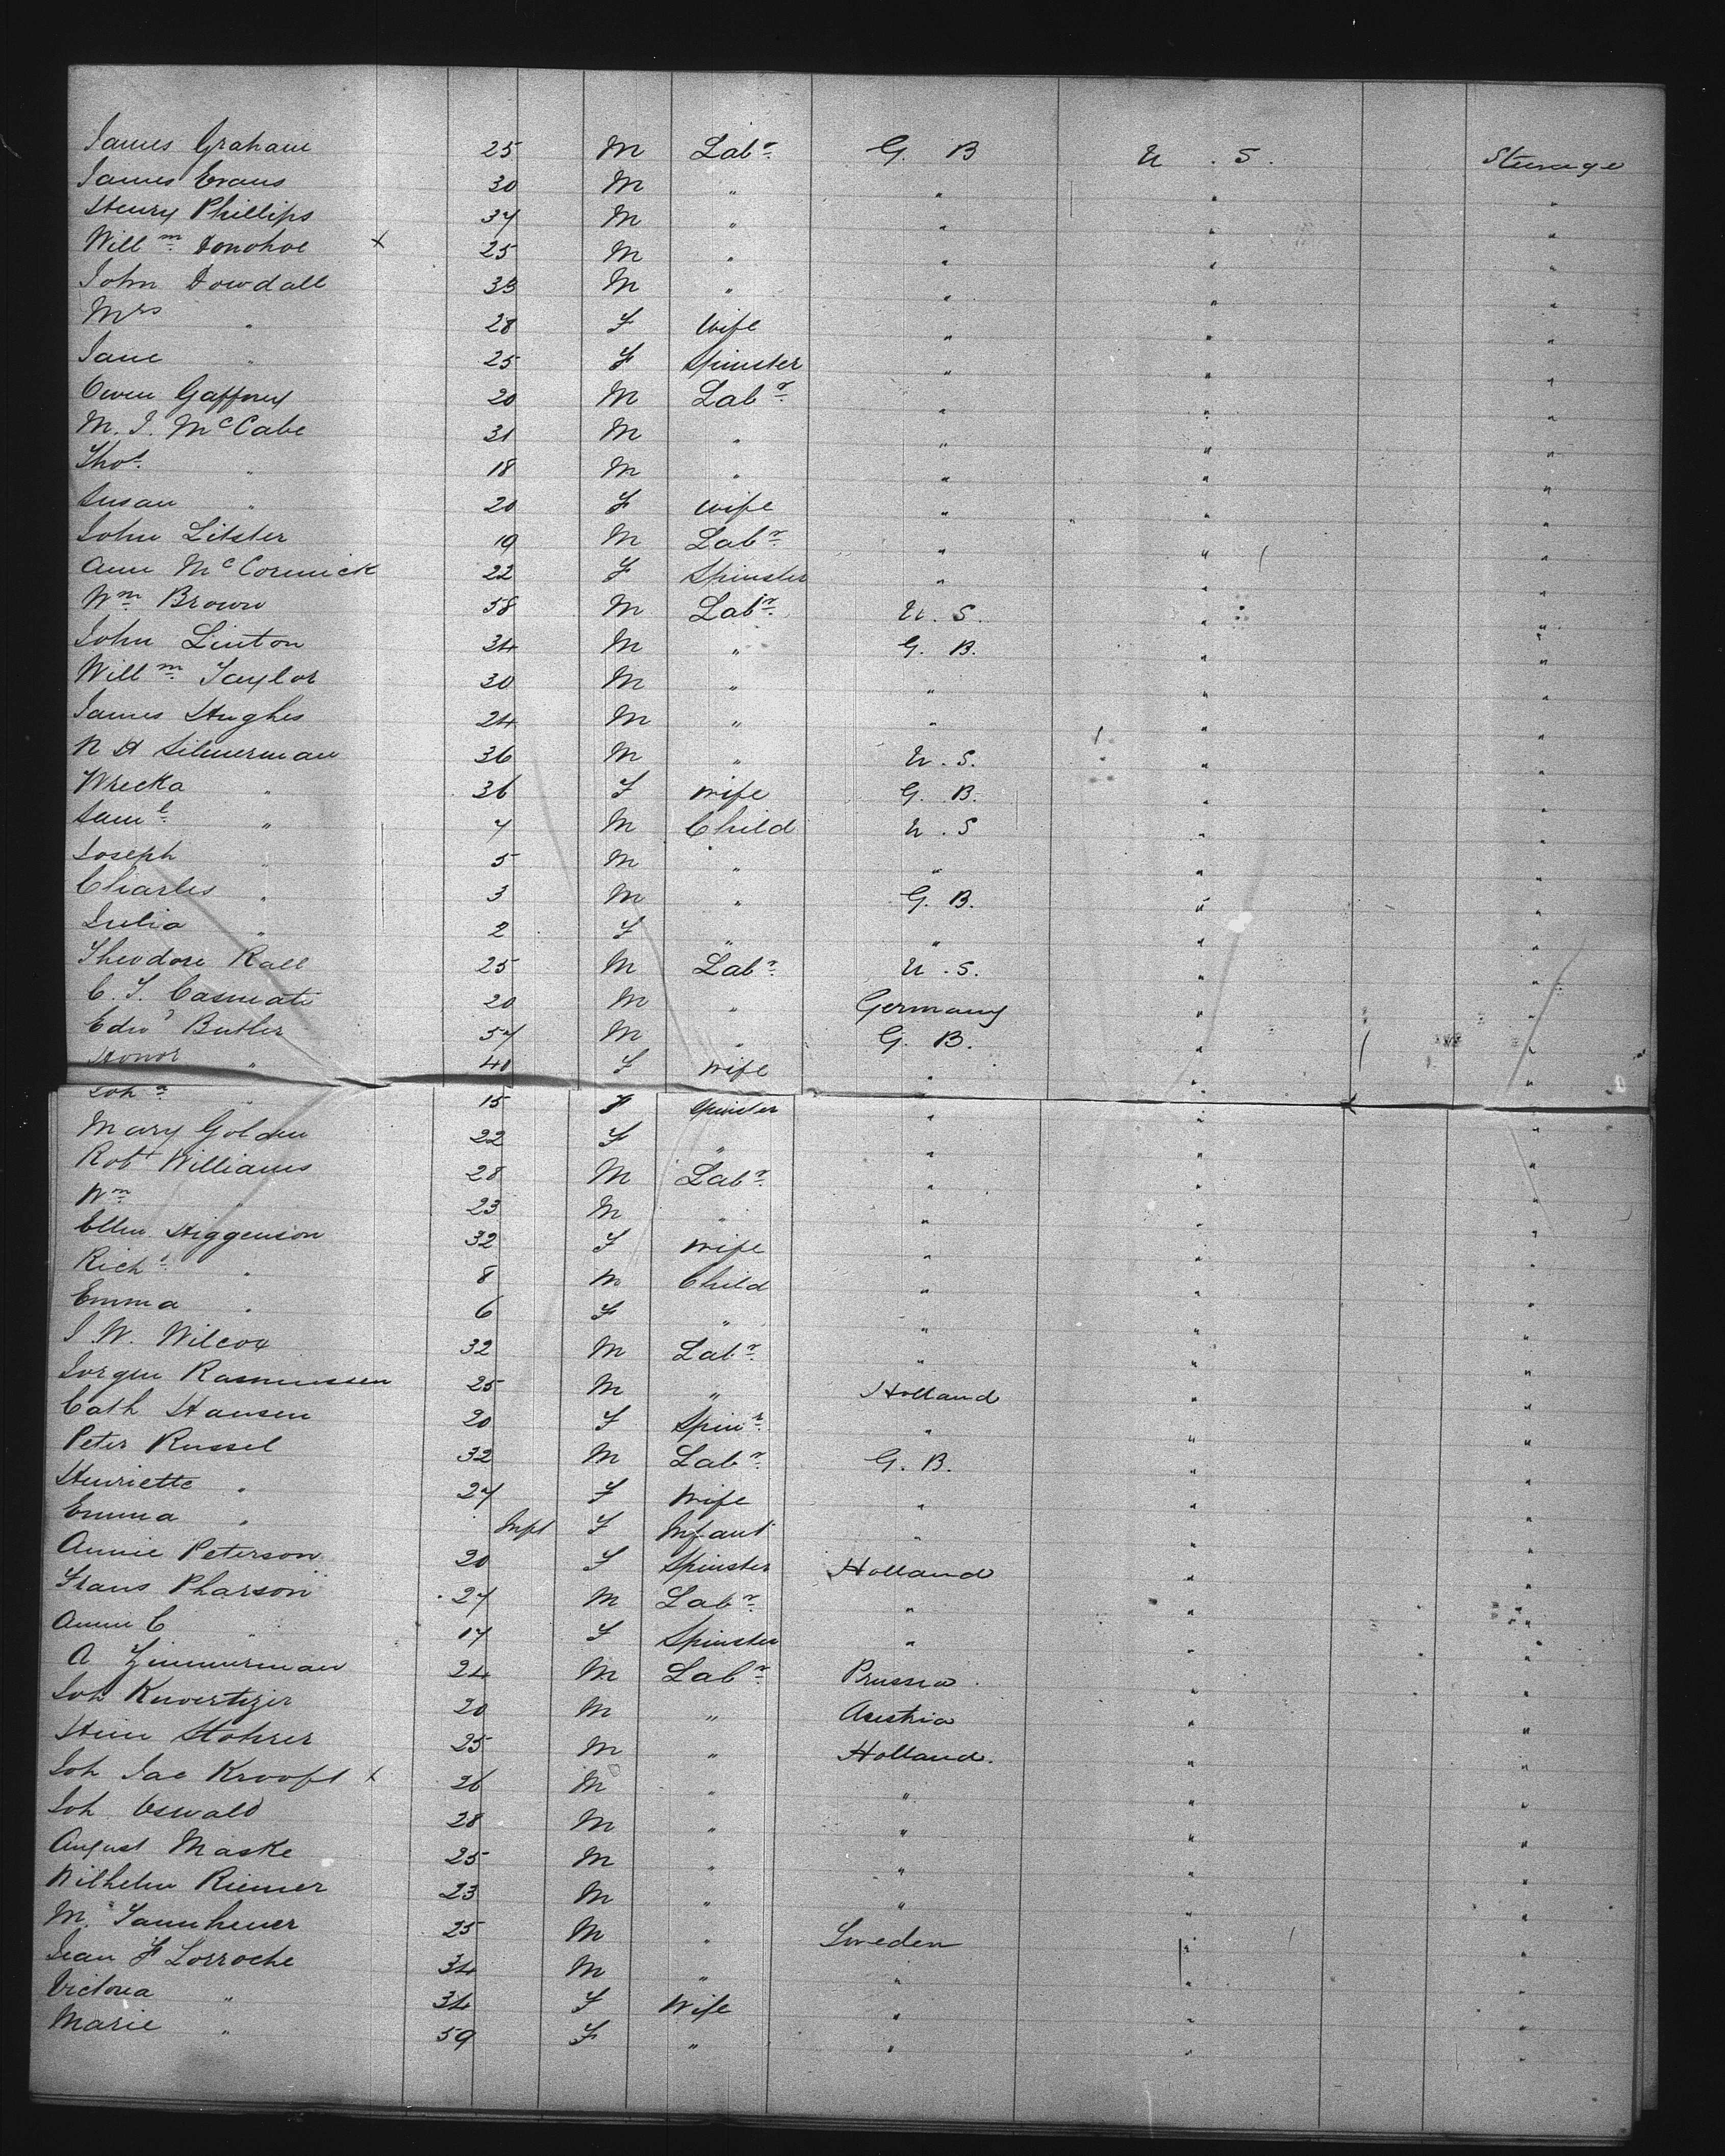 James Graham 25 M Labr G. B U. S. Steerage
James Evans 30 M " " " "
Henry Phillips 37 M " " " "
Willm Donohoe x 25 M " " " "
John Dowdall 33 M " " " "
Mrs " 28 F Wife " " "
Jane " 25 F Spinster " " "
Owen Gaffney 20 M Labr " " "
M. J. McCabe 31 M " " " "
Thos " 18 M " " " "
Susan " 20 F Wife " " "
John Litster 19 M Labr " " "
Ann McCormick 22 F Spinster " " "
Wm Brown 58 M Labr U. S. " "
John Linton 34 M " G. B. " "
Willm Taylor 30 M " " " "
James Hughes 24 M " " " "
N H Silmerman 36 M " U. S. " "
Wrecka " 36 F Wife G. B. " "
Saml " 7 M Child U. S " "
Joseph " 5 M " " " "
Charles " 3 M " G. B. " "
Julia " 2 F " " " "
Theodore Rall 25 M Labr U. S. " "
C. T. Casmati 20 M " Germany " "
Edwd Butler 57 M " G. B. " "
Honor " 40 F Wife " " "
Joha " 15 F Spinster " " "
Mary Golden 22 F " " " "
Robt Williams 28 M Labr " " "
Wm " 23 M " " " "
Ellen Higgenson 32 F Wife " " "
Richd " 8 M Child " " "
Emma " 6 F " " " "
J. W. Wilcox 32 M Labr " " "
Jorgen Rasmussen 25 M " Holland " "
Cath Hansen 20 F Spinr " " "
Peter Russel 32 M Labr G. B. " "
Henriette " 27 F Wife " " "
Emma " Inft F Infant " " "
Annie Peterson 20 F Spinster Holland " "
Frans Pharson 27 M Labr " " "
Annie C " 17 F Spinster " " "
A Zimmerman 24 M Labr Prussia " "
Joh 20 M " Austria " "
Hein Stohrer 25 M " Holland. " "
Joh Jac Krooft x 26 M " " " "
Joh Oswald 28 M " " " "
August Maske 25 M " " " "
Wilhelm Riemer 23 M " " " "
M. Tannheuer 25 M " Sweden " "
Jean F Lorroche 34 M " " " "
Victoria " 34 F Wife " " "
Marie " 59 F " " " "